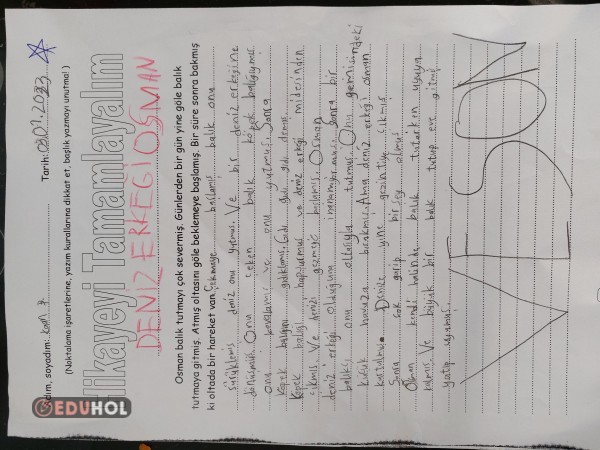 Adım, soyadım: Tarih: 08.01.2023
Hikayeyi Tamamlayalım
(Noktalama işaretlerine, yazım kurallarına dikkat et, başlık yazmayı unutma!)
DENİZ ERKEĞİ OSMAN
Osman balık tutmayı çok severmiş. Günlerden bir gün yine göle balık
tutmaya gitmiş. Atmış oltasını göle beklemeye başlamış. Bir süre sonra bakmış
ki oltada bir hareket var. Çekmeye başlamış balık onu
sürüklemiş deniz onu yutmuş. Ve bir deniz erkeğine
dönüşmüş. Onu çeken balık köpek balığıymış.
onu kovalamış ve onu yutmuş. Sonra
köpek balığını gıdıklamış. Gıdı gıdı gıdı demiş.
köpek balığı hapşurmuş ve deniz erkeği midesinden
çıkmış. Ve denizi gezmeye başlamış. Osman
deniz erkeği olduğuna inanamıyormuş. sonra bir
balıkçı onu oltasıyla tutmuş. Onu gemisindeki
küçük havuza bırakmış. Ama deniz erkeği olman
kurtulmuş. Denize yine gezintiye çıkmış
Sonra çok garip bir şey olmuş
Osman kendi halinde balık tutarken uykuya
kalmış. Ve büyük bir balık tutup eve gitmiş
yatıp uyumuş.
SON
EDUHOL